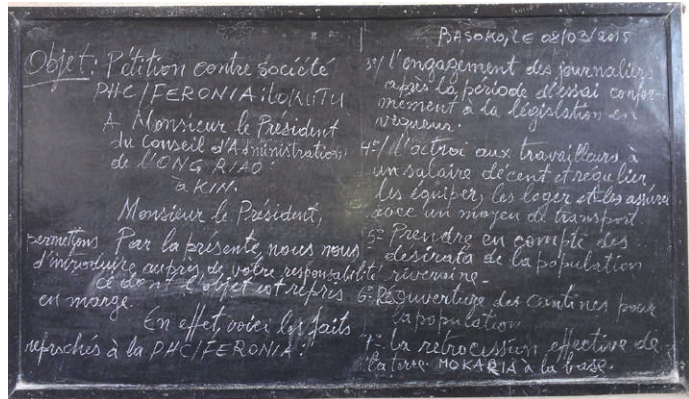 Objet: Pétition contre société
PHC/FERONIA:LOKUTU
A Monsieur le Président
du Conseil d'Administration
de l'ONG RIAO
à KIN.
Monsieur le Président,
Par la présente, nous nous
permettons
d'introduire auprès de votre responsabilité
ce dont l'objet est repris
en marge.
En effet, voici les faits
reprochés à la PHC/FERONIA:
BASOKO, LE 08/03/2015
3°/ l'engagement des journaliers
après la période d'essai confor-
mément à la législation en
vigueur.
4°/ l'octroi aux travailleurs à
un salaire décent et régulier
les équiper, les loger et les assurer
avec un moyen de transport
5° Prendre en compte des
désirata de la population
riveraine.
6° Réouverture des cantines pour
la population
7° la rétrocession effective de
la terre MOKARIA à la base.